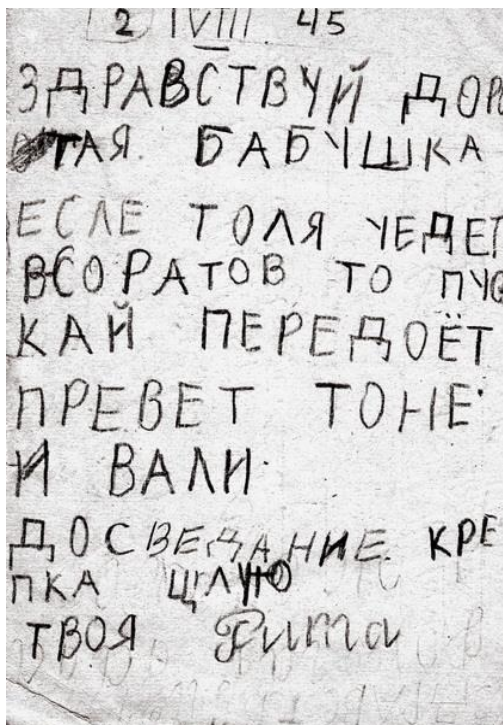 2 VIII 45
ЗДРАВСТВУЙ ДОР
ГАЯ. БАБУШКА
ЕСЛЕ ТОЛЯ УЕДЕТ
ВСОРАТОВ ТО ПУС
КАЙ ПЕРЕДОЁТ
ПРЕВЕТ ТОНЕ
И ВАЛИ.
ДОСВЕДАНИЕ. КРЕ
ПКА ЦЛУЮ
ТВОЯ Рита